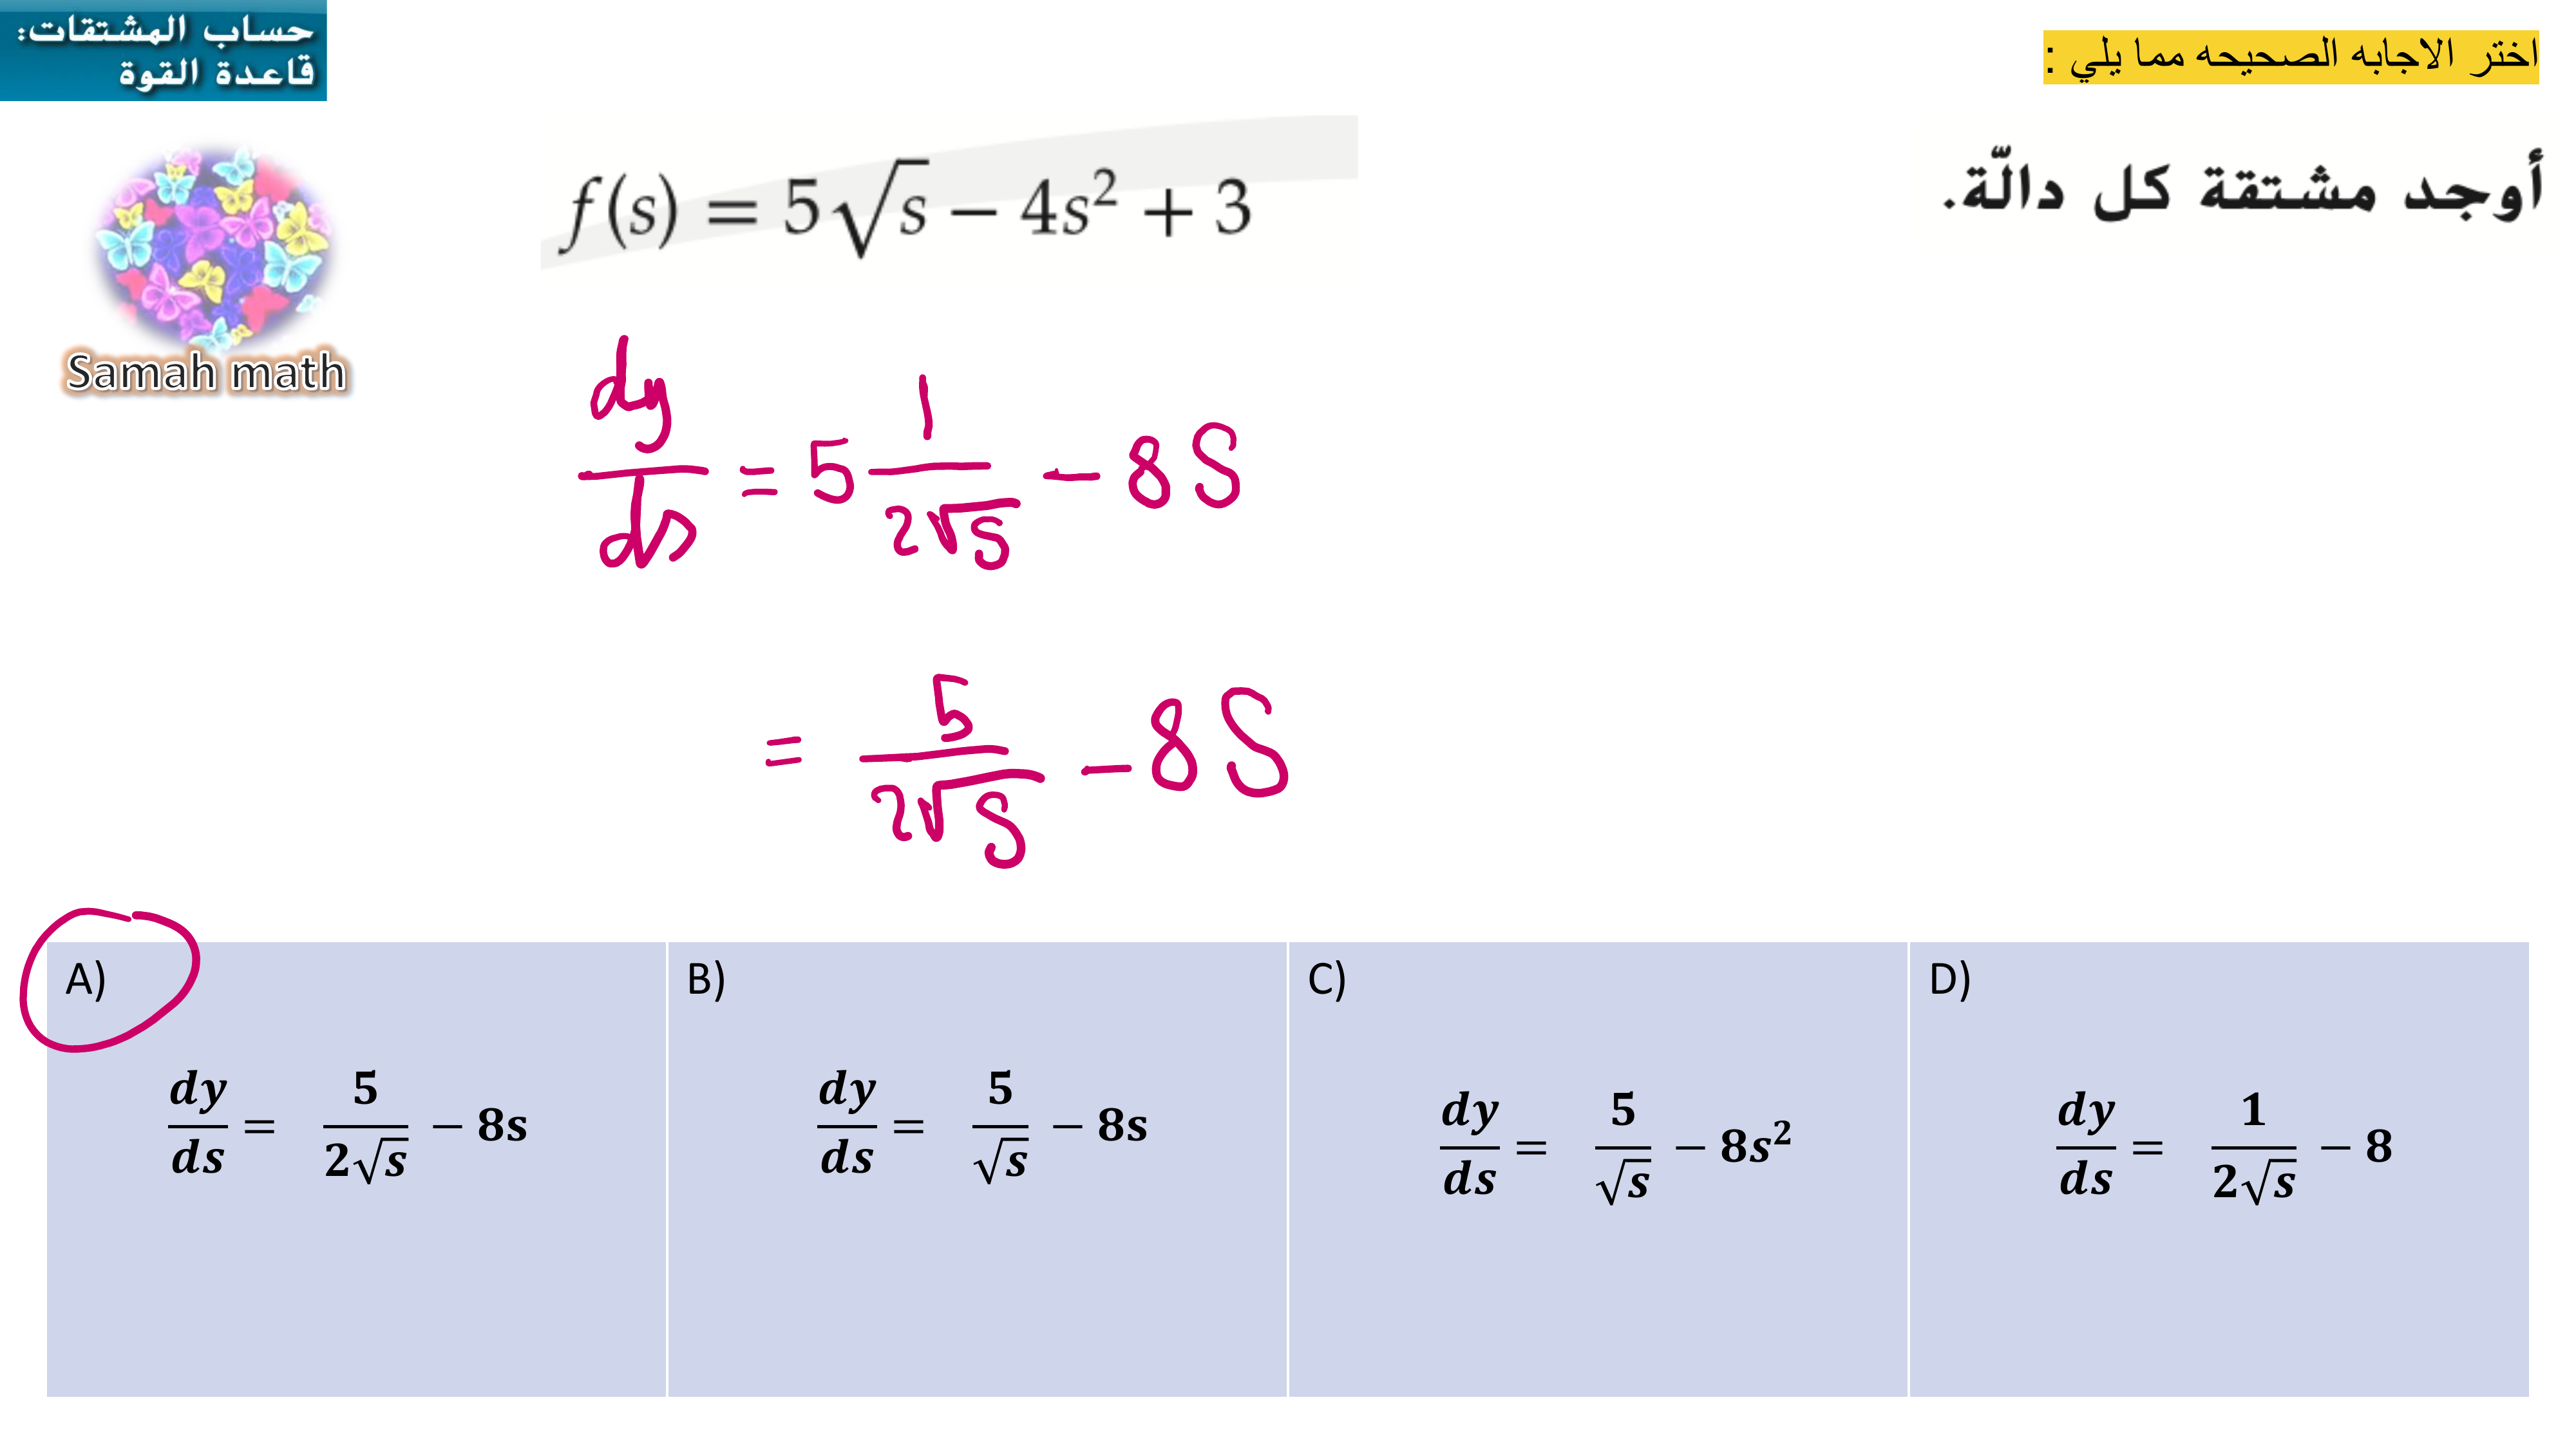 حساب المشتقات:
قاعدة القوة
اختر الاجابه الصحيحه مما يلي :
أوجد مشتقة كل دالّة.
f(s) = 5√s − 4s² + 3
Samah math
dy/ds = 5 1/(2√s) − 8S
= 5/(2√s) − 8S
A)
dy/ds = 5/(2√s) − 8s
B)
dy/ds = 5/√s − 8s
C)
dy/ds = 5/√s − 8s²
D)
dy/ds = 1/(2√s) − 8